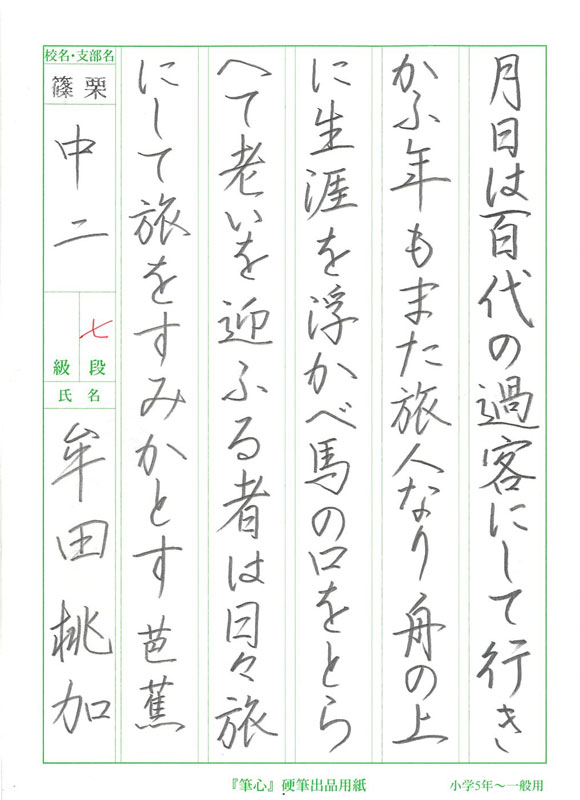 月日は百代の過客にして行き
かふ年もまた旅人なり舟の上
に生涯を浮かべ馬の口をとら
へて老いを迎ふる者は日々旅
にして旅をすみかとす 芭蕉
校名・支部名
篠栗
中二
七段
級
氏名
牟田桃加
『筆心』硬筆出品用紙
小学5年～一般用